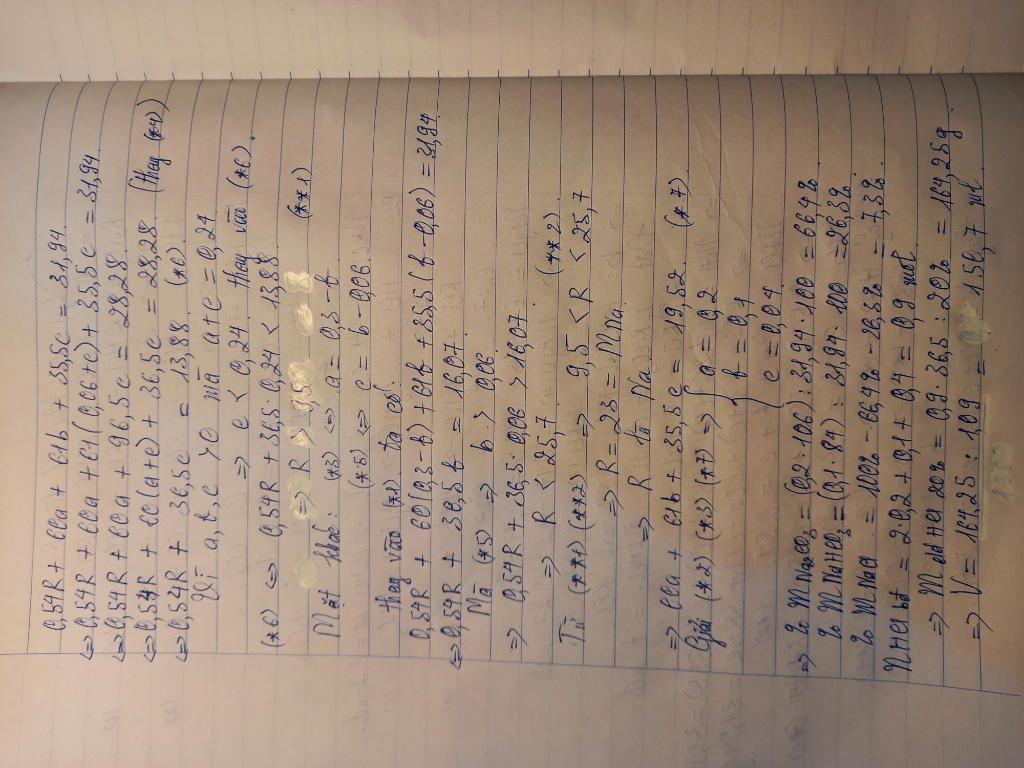 0,54R + 60a + 61b + 35,5c = 31,94.
<=> 0,54R + 60a + 61(0,06+c) + 35,5c = 31,94.
<=> 0,54R + 60a + 96,5c = 28,28
<=> 0,54R + 60(a+c) + 36,5c = 28,28 (thay (*4))
<=> 0,54R + 36,5c = 13,88. (*6)
Vì a, b, c > 0 mà a+c = 0,24
=> c < 0,24 thay vào (*6).
(*6) <=> 0,54R + 36,5 . 0,24 < 13,88
=> R > 9,5 (**1)
Mặt khác: (*3) <=> a = 0,3 - b
(*5) <=> c = b - 0,06.
thay vào (*2) ta có:
0,54R + 60(0,3-b) + 61b + 35,5(b-0,06) = 31,94
<=> 0,54R + 36,5b = 16,07
Mà (*5) => b > 0,06
=> 0,54R + 36,5 . 0,06 > 16,07
=> R < 25,7 (**2)
Từ (**1) (**2) => 9,5 < R < 25,7
=> R = 23 = MNa.
=> R là Na.
=> 60a + 61b + 35,5c = 19,52 (*7)
Giải (*2) (*3) (*7) => { a = 0,2
b = 0,1
c = 0,04
=> % mNa2CO3 = (0,2 . 106) : 31,94 . 100 = 66,4%
% mNaHCO3 = (0,1 . 84) : 31,94 . 100 = 26,3%
% mNaCl = 100% - 66,4% - 26,3% = 7,3%.
nHCl bđ = 2 . 0,2 + 0,1 + 0,4 = 0,9 mol
=> mdd HCl 20% = 0,9 . 36,5 : 20% = 164,25g.
=> V = 164,25 : 109 = 150,7 ml